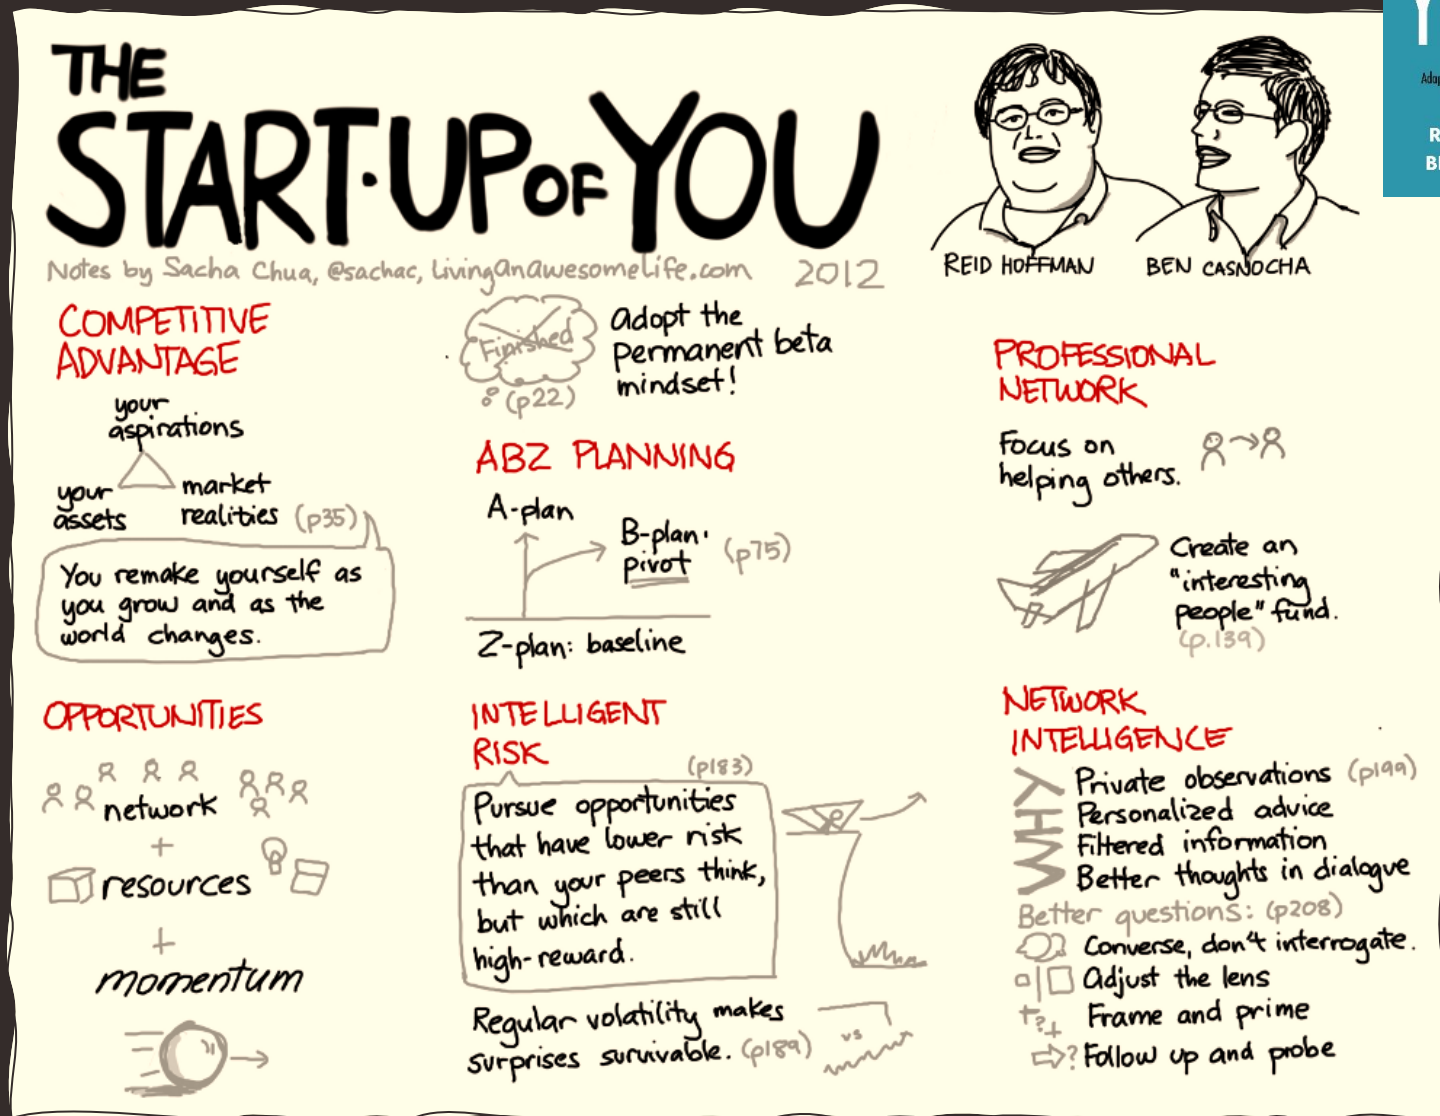 THE
START·UP OF YOU
REID HOFFMAN
BEN CASNOCHA
Notes by Sacha Chua, @sachac, LivingAnAwesomeLife.com 2012
COMPETITIVE
ADVANTAGE
your
aspirations
your
assets
market
realities (p35)
You remake yourself as
you grow and as the
world changes.
OPPORTUNITIES
network
+
resources
+
momentum
Finished
(p22)
Adopt the
permanent beta
mindset!
ABZ PLANNING
A-plan
B-plan:
pivot
(p75)
Z-plan: baseline
INTELLIGENT
RISK
(p183)
Pursue opportunities
that have lower risk
than your peers think,
but which are still
high-reward.
Regular volatility makes
surprises survivable. (p189)
vs
PROFESSIONAL
NETWORK
Focus on
helping others.
Create an
"interesting
people" fund.
(p.139)
NETWORK
INTELLIGENCE
WHY
Private observations (p199)
Personalized advice
Filtered information
Better thoughts in dialogue
Better questions: (p208)
Converse, don't interrogate.
Adjust the lens
+?+ Frame and prime
? Follow up and probe